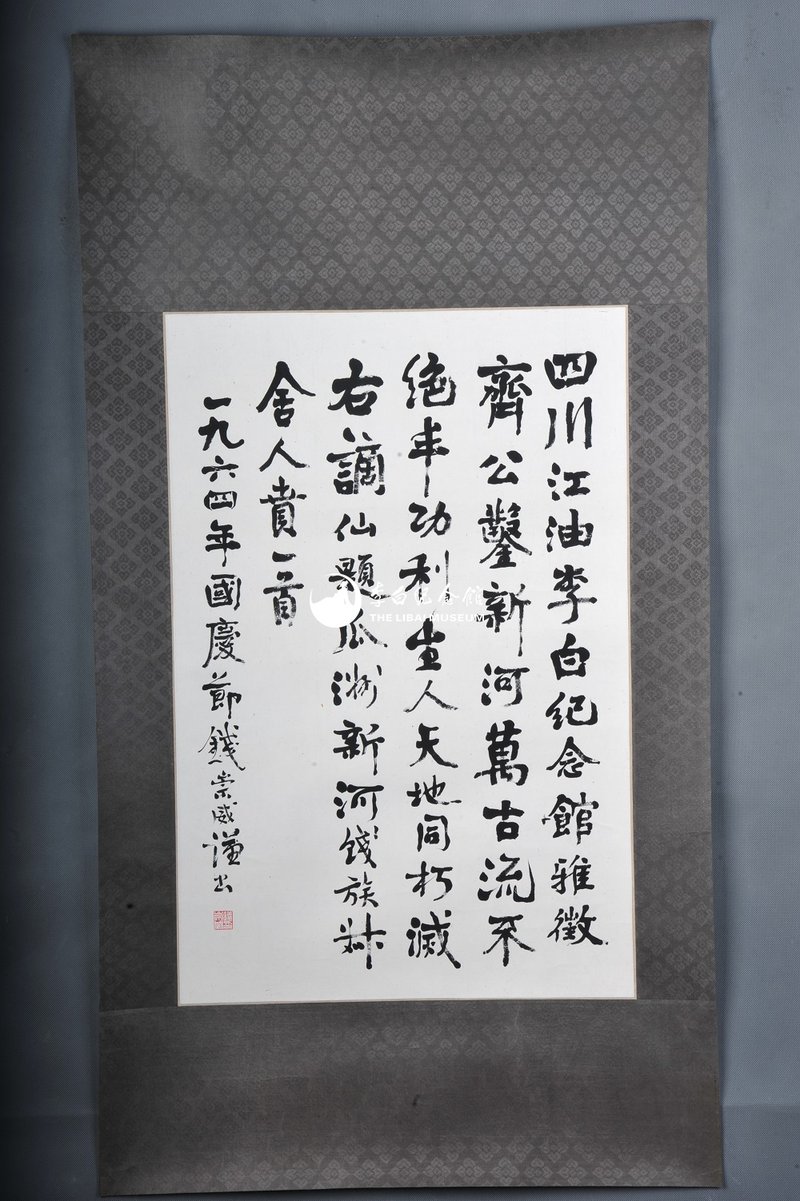 四川江油李白紀念館雅徵
齊公鑿新河萬古流不
絶丰功利生人天地同朽滅
右謫仙題瓜洲新河餞族叔
舍人賁一首
一九六四年國慶節錢崇威謹书
李白纪念馆
THE LIBAI MUSEUM